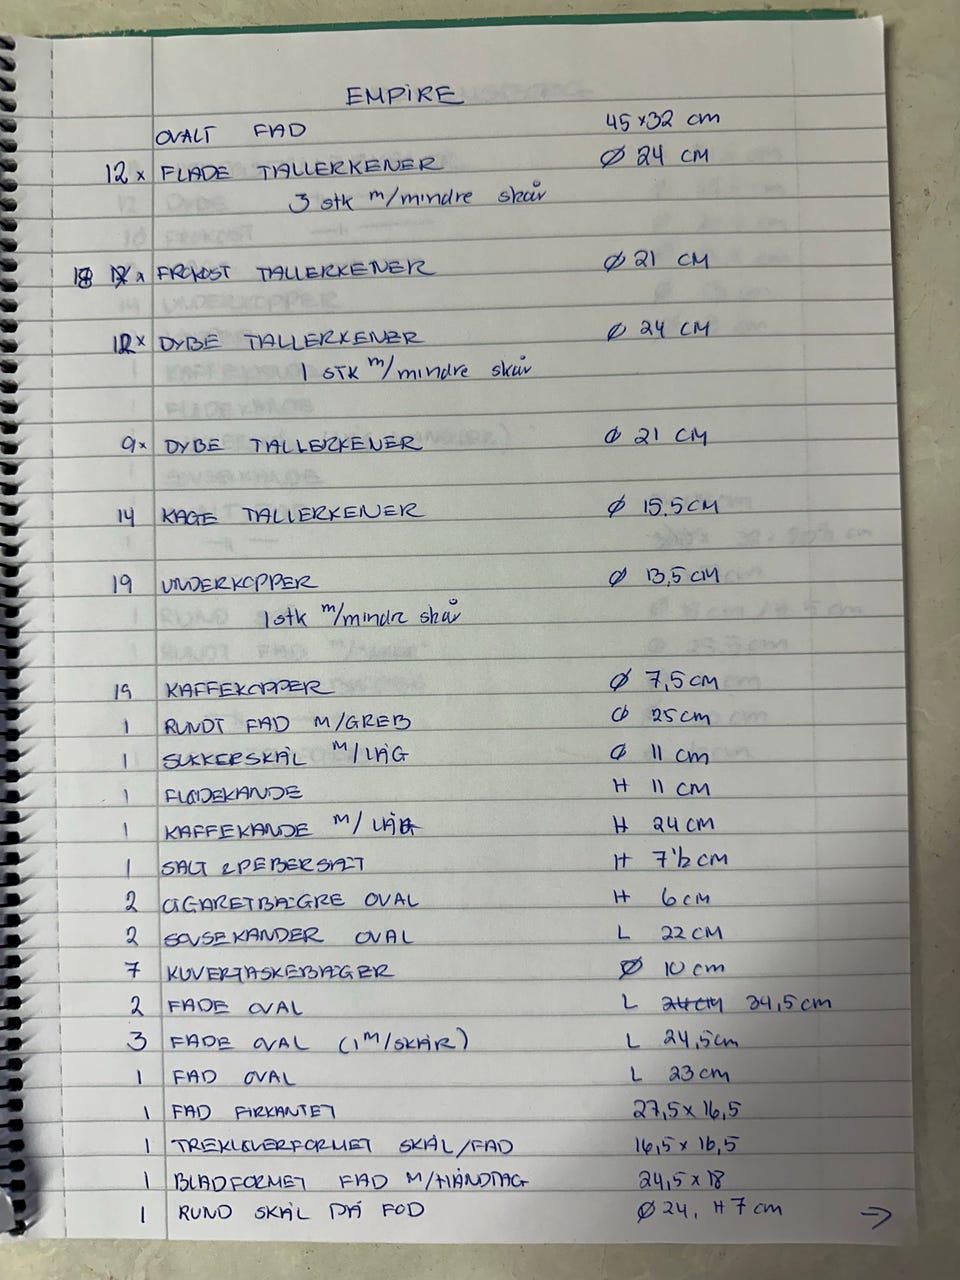 EMPIRE
OVALT FAD 45x32 cm
12x FLADE TALLERKENER Ø 24 CM
3 stk m/mindre skår
18 x FROKOST TALLERKENER Ø 21 CM
12x DYBE TALLERKENER Ø 24 CM
1 STK m/mindre skår
9x DYBE TALLERKENER Ø 21 CM
14 KAGE TALLERKENER Ø 15,5 CM
19 UNDERKOPPER Ø 13,5 CM
1 stk m/mindre skår
19 KAFFEKOPPER Ø 7,5 cm
1 RUNDT FAD M/GREB Ø 25 cm
1 SUKKERSKÅL M/LÅG Ø 11 cm
1 FLØDEKANDE H 11 CM
1 KAFFEKANDE M/LÅG H 24 CM
1 SALT & PEBERSÆT H 7 1/2 cm
2 CIGARETBÆGRE OVAL H 6 cm
2 SOVSEKANDER OVAL L 22 CM
7 KUVERTASKEBÆGER Ø 10 cm
2 FADE OVAL L 24 CM 34,5 cm
3 FADE OVAL (1 M/SKÅR) L 24,5 cm
1 FAD OVAL L 23 cm
1 FAD FIRKANTET 27,5 x 16,5
1 TREKLØVERFORMET SKÅL/FAD 16,5 x 16,5
1 BLADFORMET FAD M/HÅNDTAG 24,5 x 18
1 RUND SKÅL PÅ FOD Ø 24, H 7 cm →